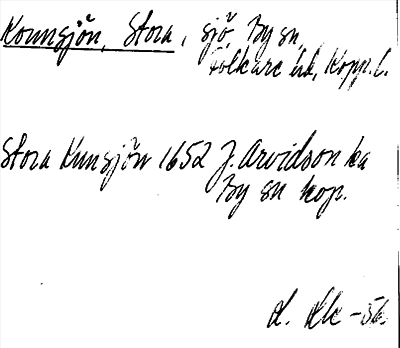 Konnsjön, Stora, sjö By sn,
Folkare hd, Kopp. l.
Stora Kunsjön 1652 J. Arvidson ka
By sn kop.
-56.